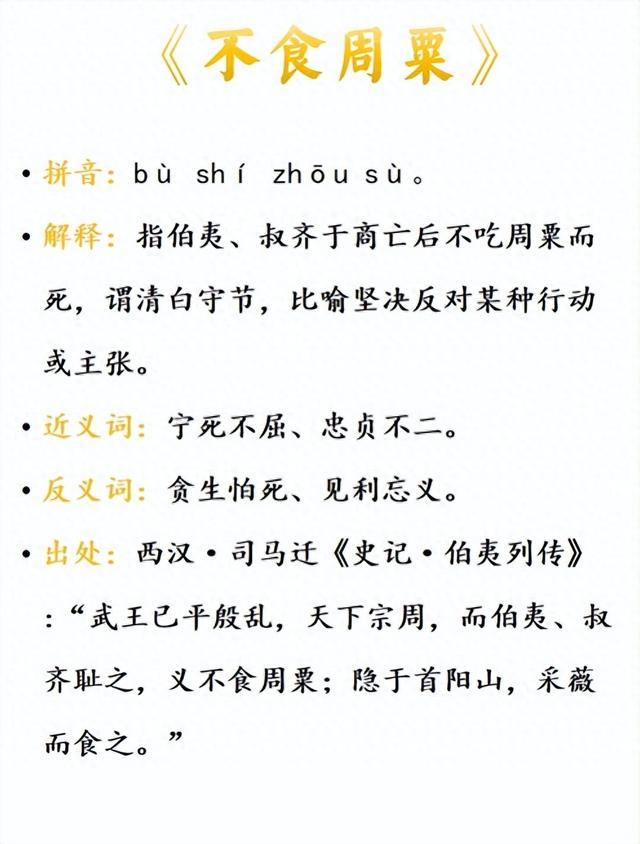 《不食周粟》
• 拼音：bù shí zhōu sù。
• 解释：指伯夷、叔齐于商亡后不吃周粟而
死，谓清白守节，比喻坚决反对某种行动
或主张。
• 近义词：宁死不屈、忠贞不二。
• 反义词：贪生怕死、见利忘义。
• 出处：西汉·司马迁《史记·伯夷列传》
：“武王已平殷乱，天下宗周，而伯夷、叔
齐耻之，义不食周粟；隐于首阳山，采薇
而食之。”